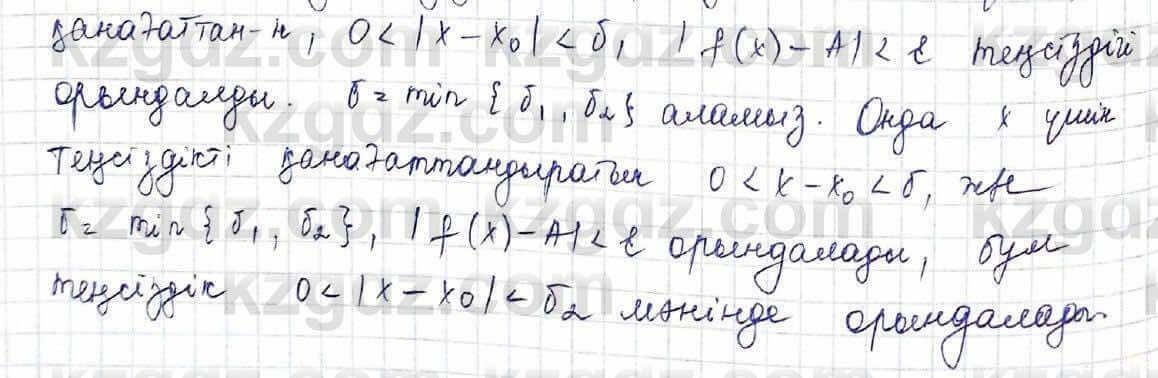 қанағаттан-н, 0 < |x - x₀| < б, |f(x) - A| < ε теңсіздігі
орындалды. б = min {б₁, б₂} аламыз. Онда x үшін
теңсіздікті қанағаттандыратын 0 < x - x₀ < б, және
б = min {б₁, б₂}, |f(x) - A| < ε орындалады, бұл
теңсіздік 0 < |x - x₀| < б₂ мәнінде орындалады.
kzgdz.com